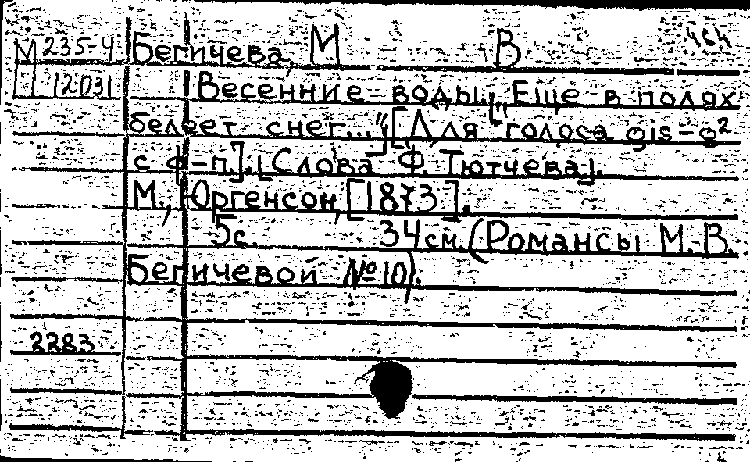 М 235-4 Бегичева, М В
П 12031 Весенние воды. „Еще в полях
белеет снег..." [Для голоса gis-g²
с ф-п.]. [Слова Ф. Тютчева].
М., Юргенсон, [1873].
5с. 34см. (Романсы М. В.
Бегичевой №10).
2283